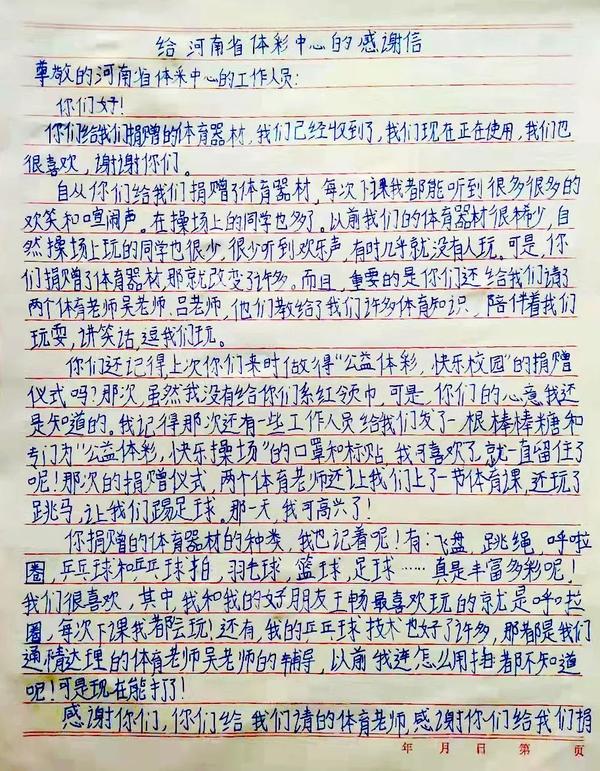 给河南省体彩中心的感谢信
尊敬的河南省体采中心的工作人员:
你们好!
你们给我们捐赠的体育器材,我们已经收到了,我们现在正在使用,我们也
很喜欢,谢谢你们。
自从你们给我们捐赠了体育器材,每次下课我都能听到很多很多的
欢笑和喧闹声。在操场上的同学也多了。以前我们的体育器材很稀少,自
然操场上玩的同学也很少,很少听到欢乐声,有时几乎就没有人玩。可是,你
们捐赠了体育器材,那就改变了许多。而且,重要的是你们还给我们请了
两个体育老师吴老师、吕老师,他们教给了我们许多体育知识,陪伴着我们
玩耍,讲笑话,逗我们玩。
你们还记得上次你们来时做得“公益体彩,快乐校园”的捐赠
仪式吗?那次,虽然我没有给你们系红领巾,可是,你们的心意我还
是知道的。我记得那次还有一些工作人员给我们发了一根棒棒糖和
专门为“公益体彩,快乐操场”的口罩和标贴,我可喜欢了,就一直留住了
呢!那次的捐赠仪式,两个体育老师还让我们上了一节体育课,还玩了
跳马,让我们踢足球。那一天,我可高兴了!
你捐赠的体育器材的种类,我也记着呢!有:飞盘,跳绳,呼啦
圈,乒乓球和乒乓球拍,羽毛球,篮球,足球……真是丰富多彩呢!
我们很喜欢,其中,我和我的好朋友王畅最喜欢玩的就是呼啦
圈,每次下课我都会玩!还有,我的乒乓球技术也好了许多,那都是我们
通情达理的体育老师吴老师的辅导,以前我连怎么用拍都不知道
呢!可是现在能打了!
感谢你们,你们给我们请的体育老师,感谢你们给我们捐
年 月 日 第 页